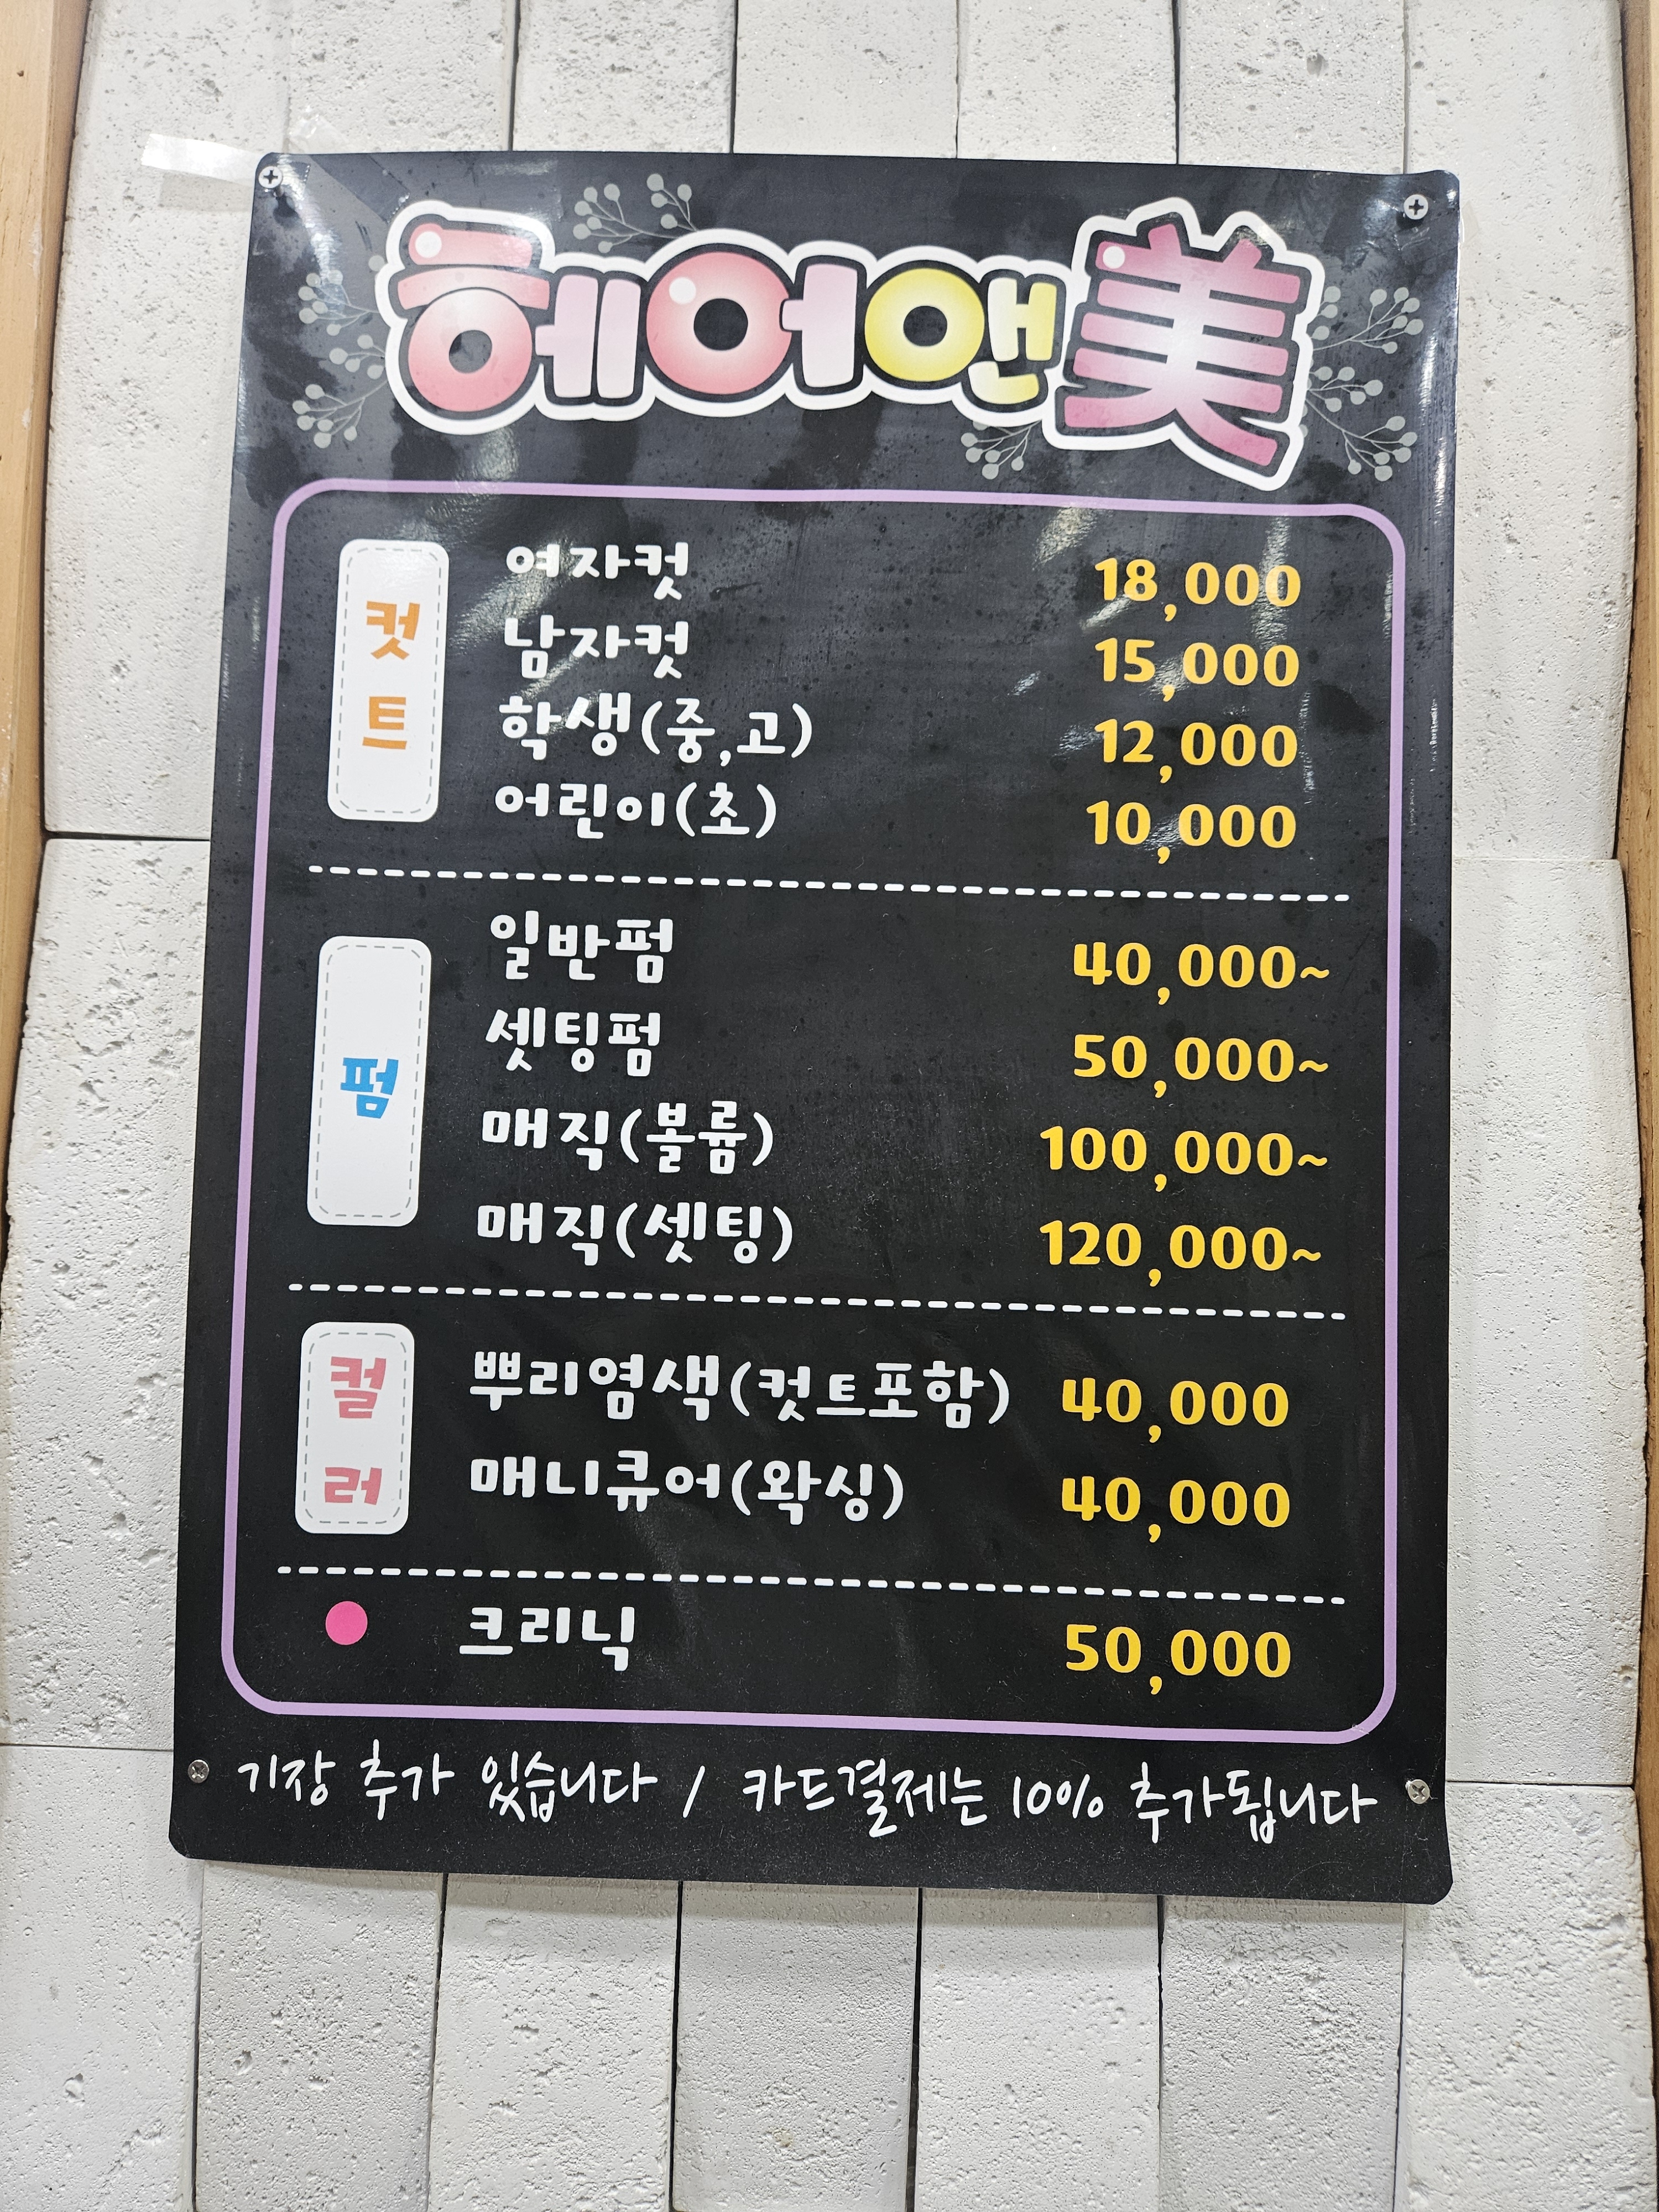 헤어앤美
컷트
여자컷 18,000
남자컷 15,000
학생(중,고) 12,000
어린이(초) 10,000
펌
일반펌 40,000~
셋팅펌 50,000~
매직(볼륨) 100,000~
매직(셋팅) 120,000~
컬러
뿌리염색(컷트포함) 40,000
매니큐어(왁싱) 40,000
크리닉 50,000
기장 추가 있습니다 / 카드결제는 10% 추가됩니다